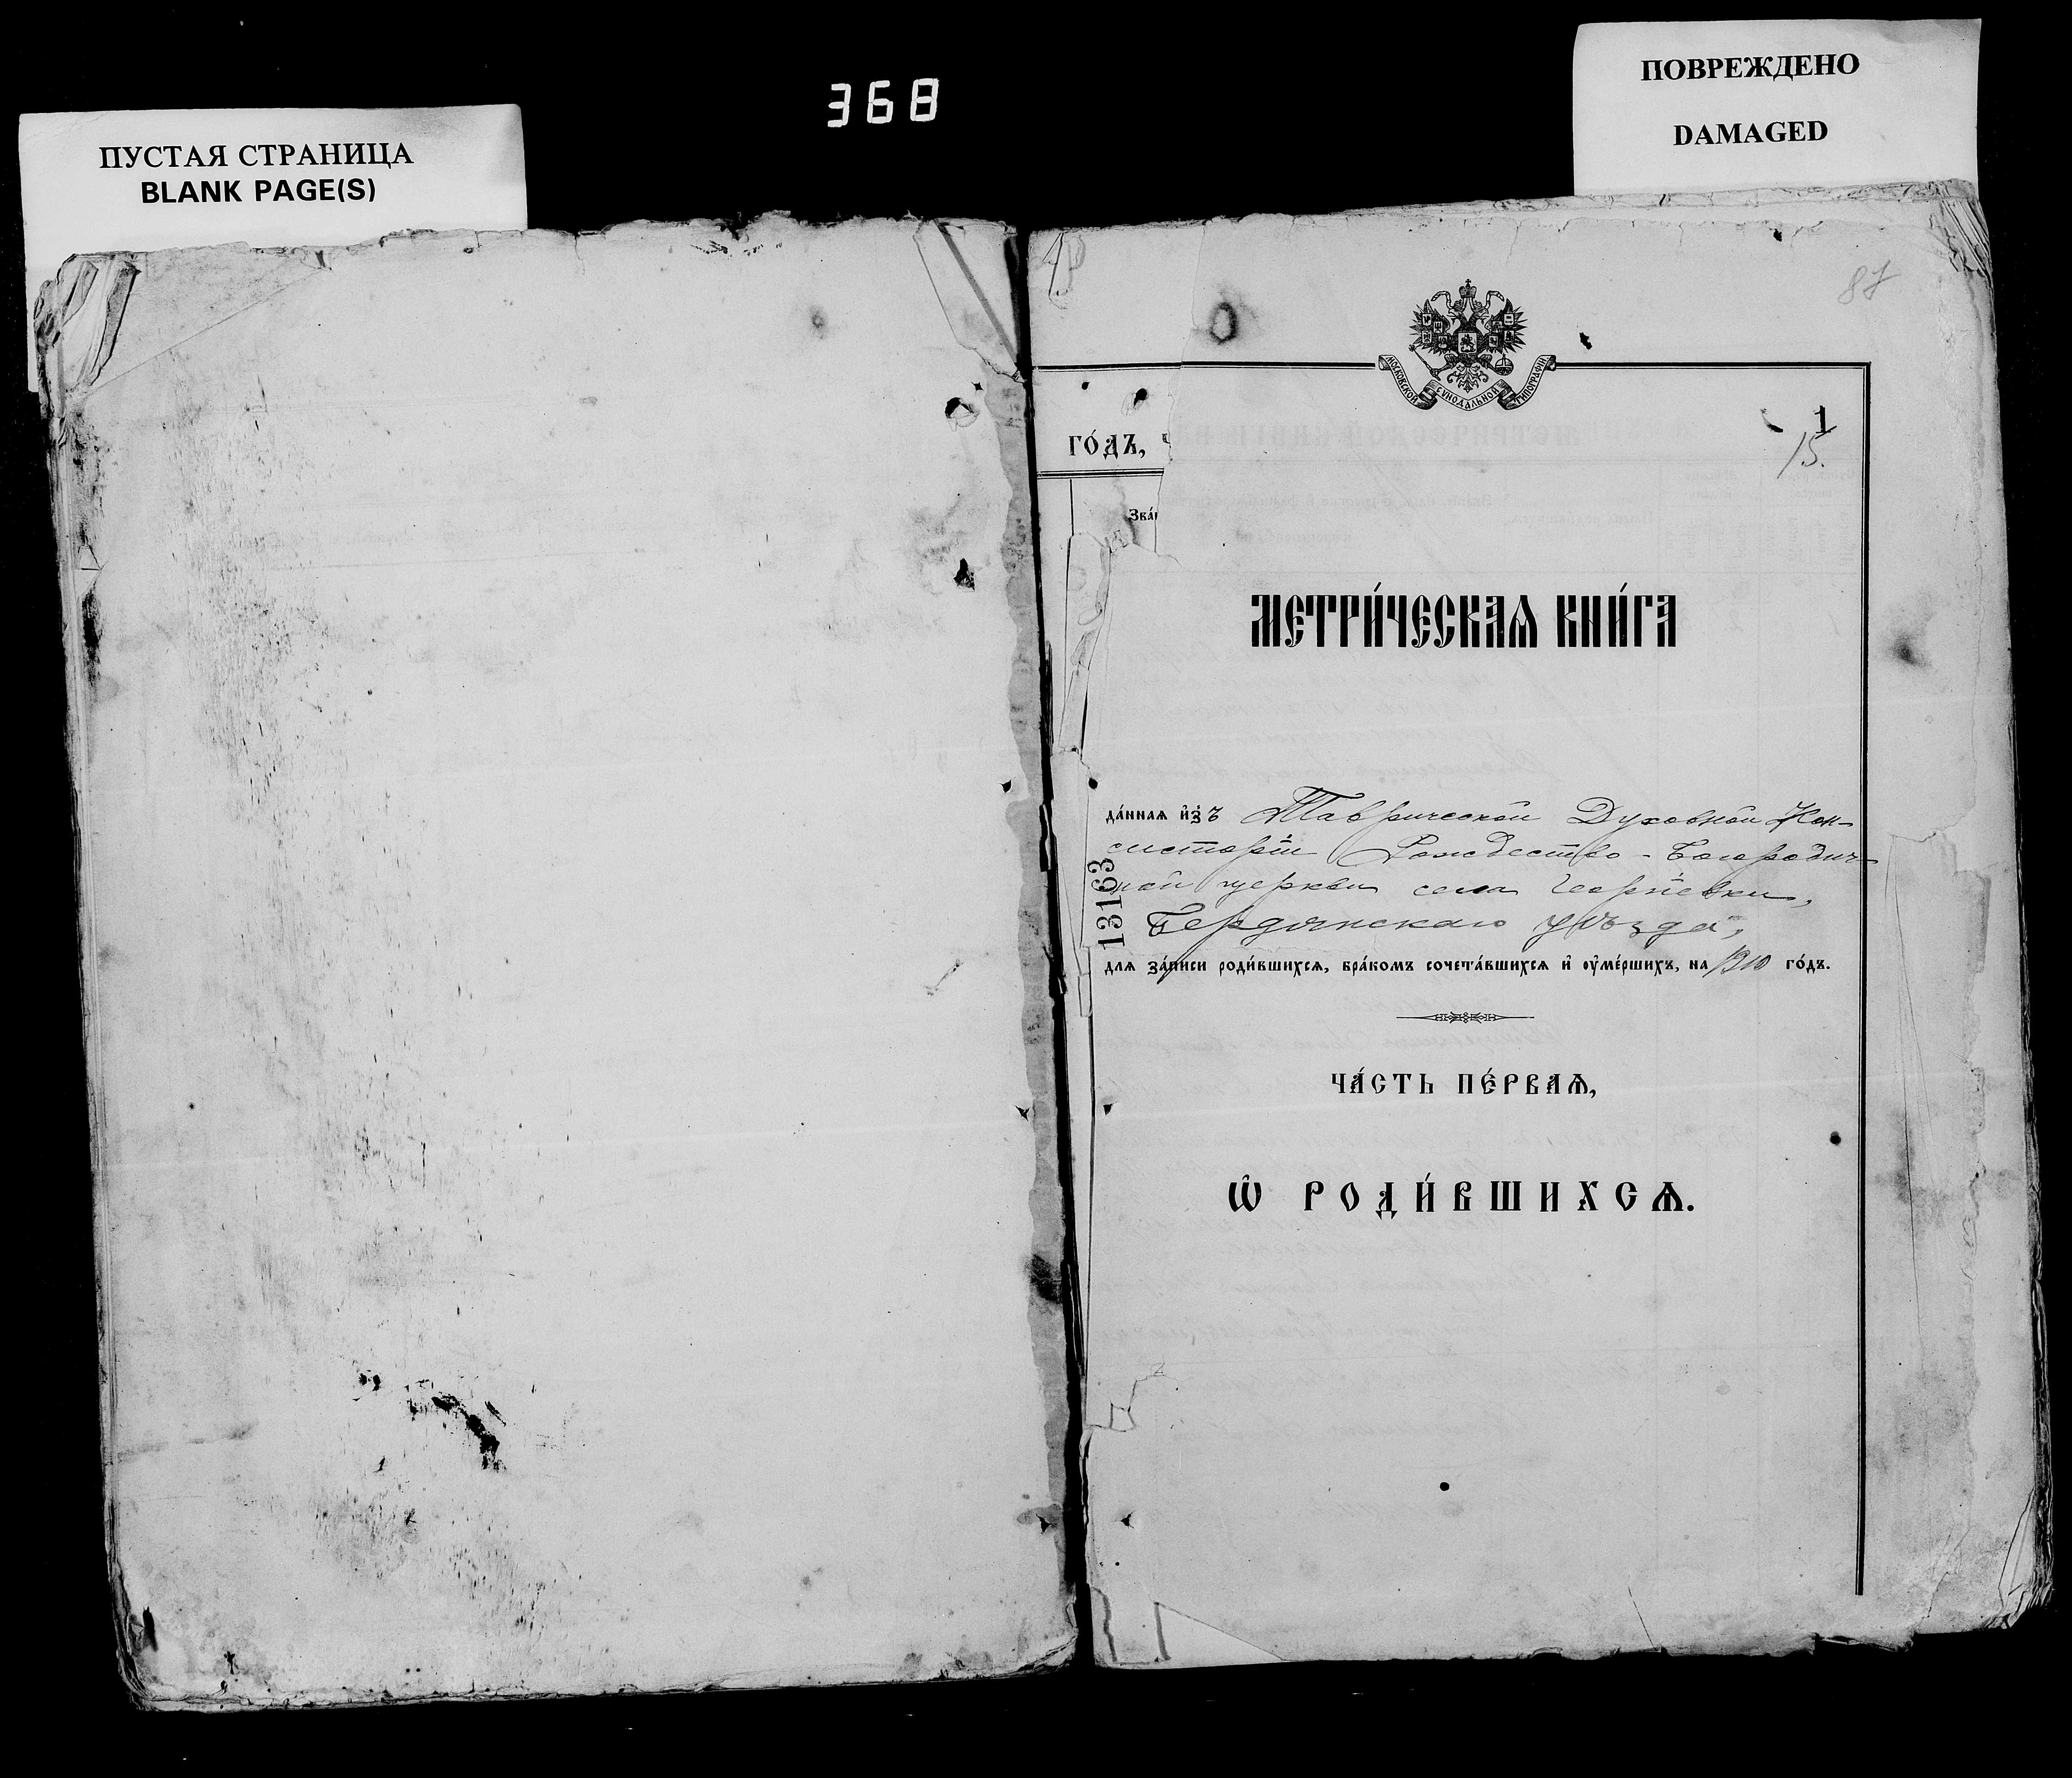 368
ПУСТАЯ СТРАНИЦА
BLANK PAGE(S)
ПОВРЕЖДЕНО
DAMAGED
87
МОСКОВСКОЙ СѴНОДАЛЬНОЙ ТИПОГРАФІИ
1
15.
го́дъ,
Зва́
МЕТРИ́ЧЕСКАѦ КНИ́ГА
да́ннаѧ и҆зъ Таврической Духовной Кон-
систоріи Рождество-Богородич-
ной церкви села Георгіевки,
Бердянскаго уѣзда,
13163
для за́писи роди́вшихсѧ, бра́комъ сочета́вшихсѧ и҆ ѹ҆ме́ршихъ, на 1910 го́дъ.
ЧА́СТЬ ПЕ́РВАѦ,
Ѽ РОДИ́ВШИХСѦ.